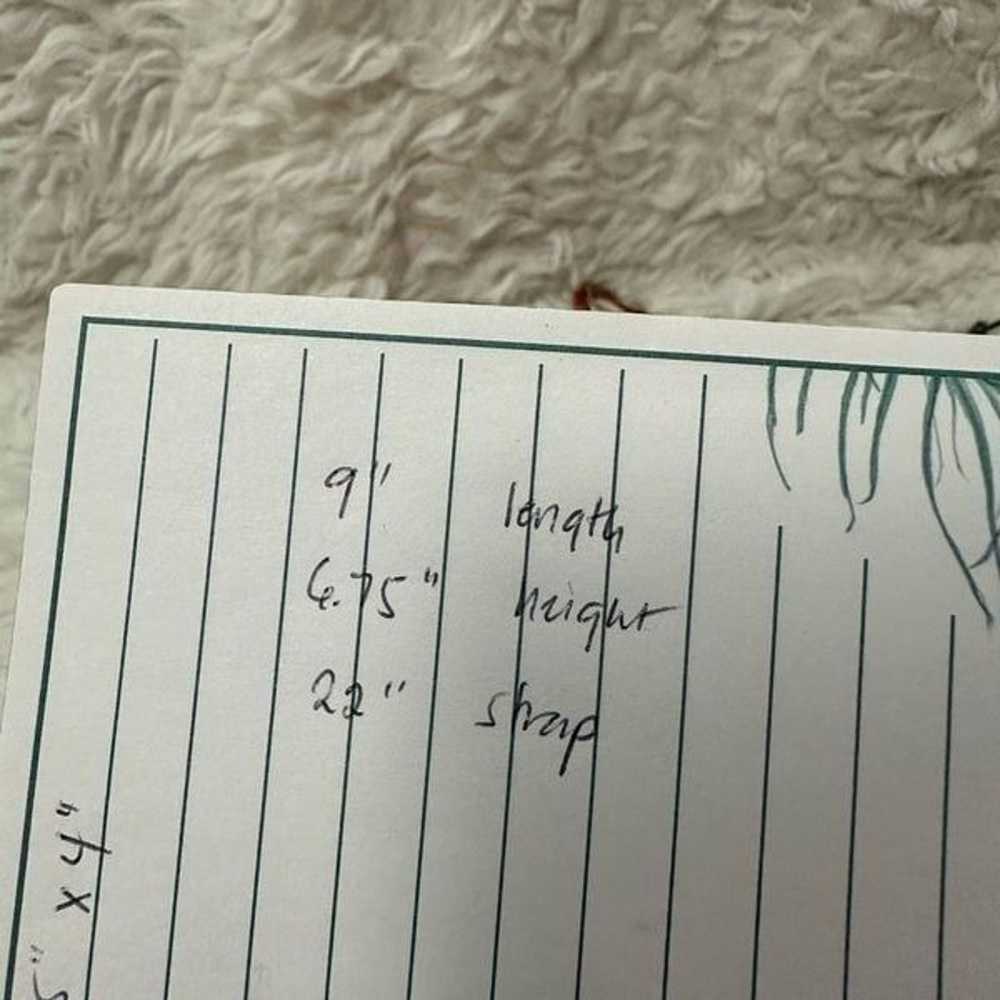 9" length
6.75" height
22" strap